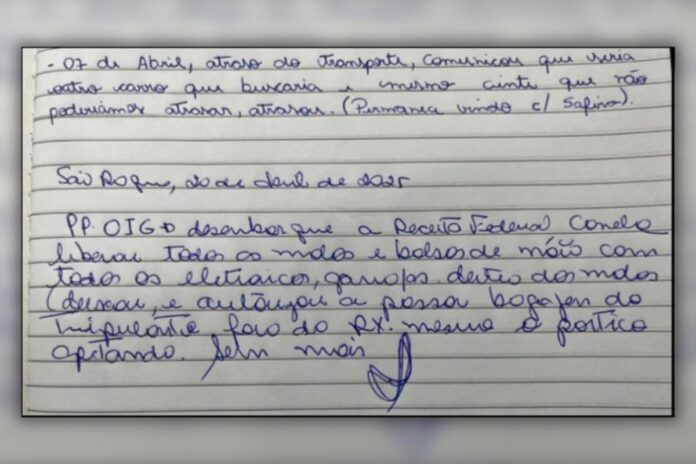 - 07 de Abril, atraso do transporte, comunicou que seria
outro carro que buscaria e mesmo ciente que não
poderíamos atrasar, atrasou. (Permanca vindo c/ Safira).
São Roque, 20 de Abril de 2025
PP. OIG+ desembarque a Receita Federal Canela
liberou todos as malas e bolsas de mão com
todos os eletronicos, garrafas dentro das malas
(deixou, e autorizou a passar bagagem do
tripulante fora do RX. mesmo o portico
apitando. Sem mais